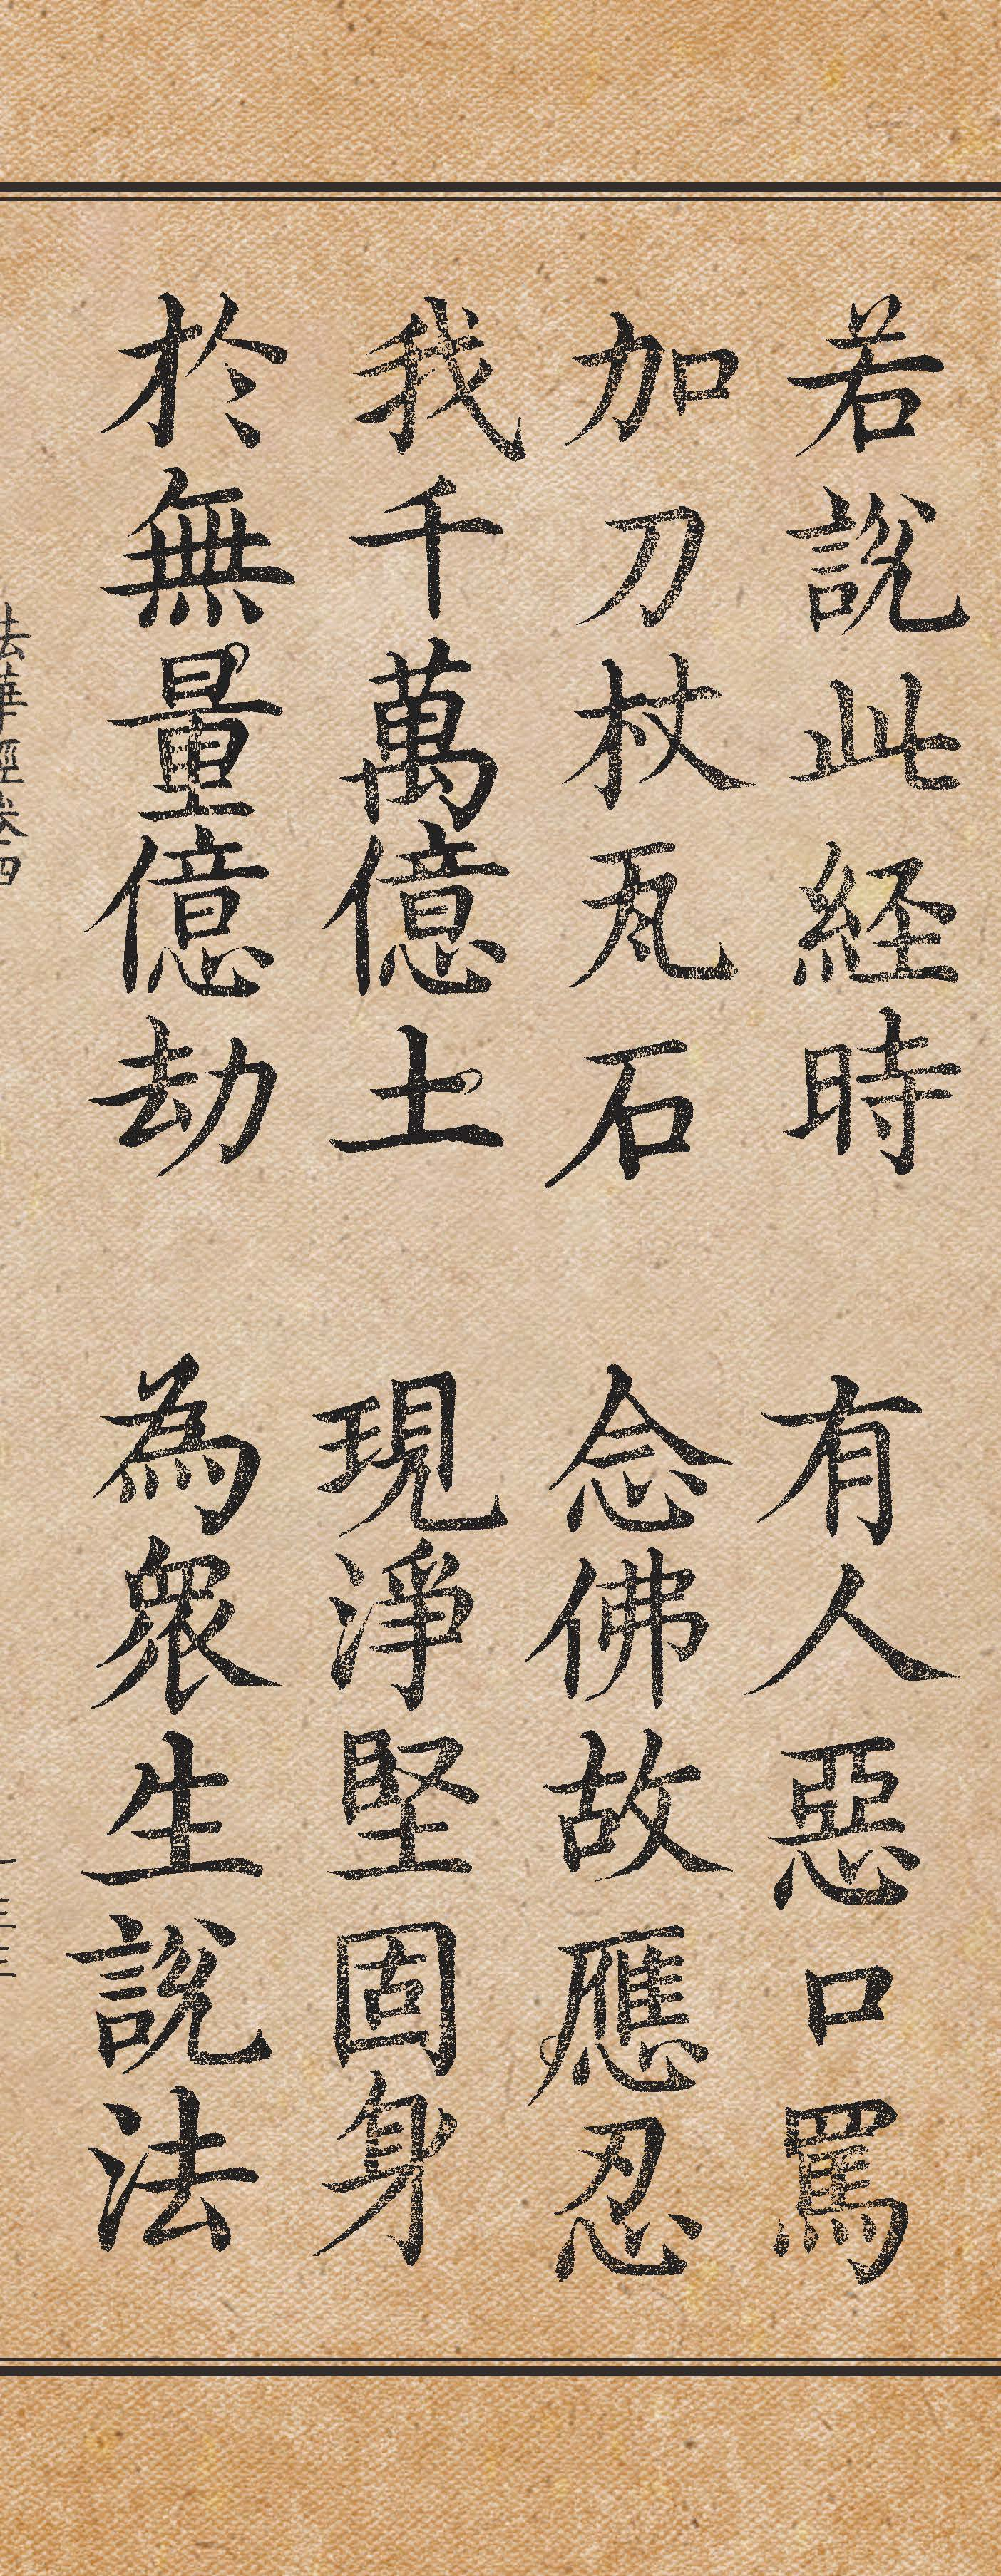 若說此経時　有人惡口罵
加刀杖瓦石　念佛故應忍
我千萬億土　現淨堅固身
於無量億劫　為衆生說法
法華經卷四